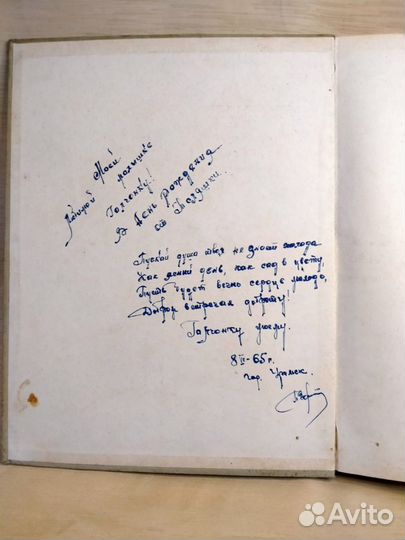 Моей
малышке
Галчонку!
в День рождения
от
Пускай душа твоя не знает холода
Как ясный день, как сад в цвету,
Пусть будет вечно сердце молодо,
Добром встречая доброту!
Галчонку
8 II-65 г.
гор.
Avito